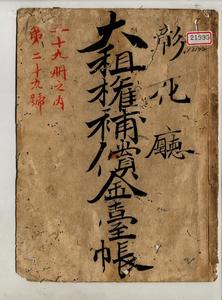 彰化廳
大租權補償金臺帳
二十九冊之內
第二十九號
21995